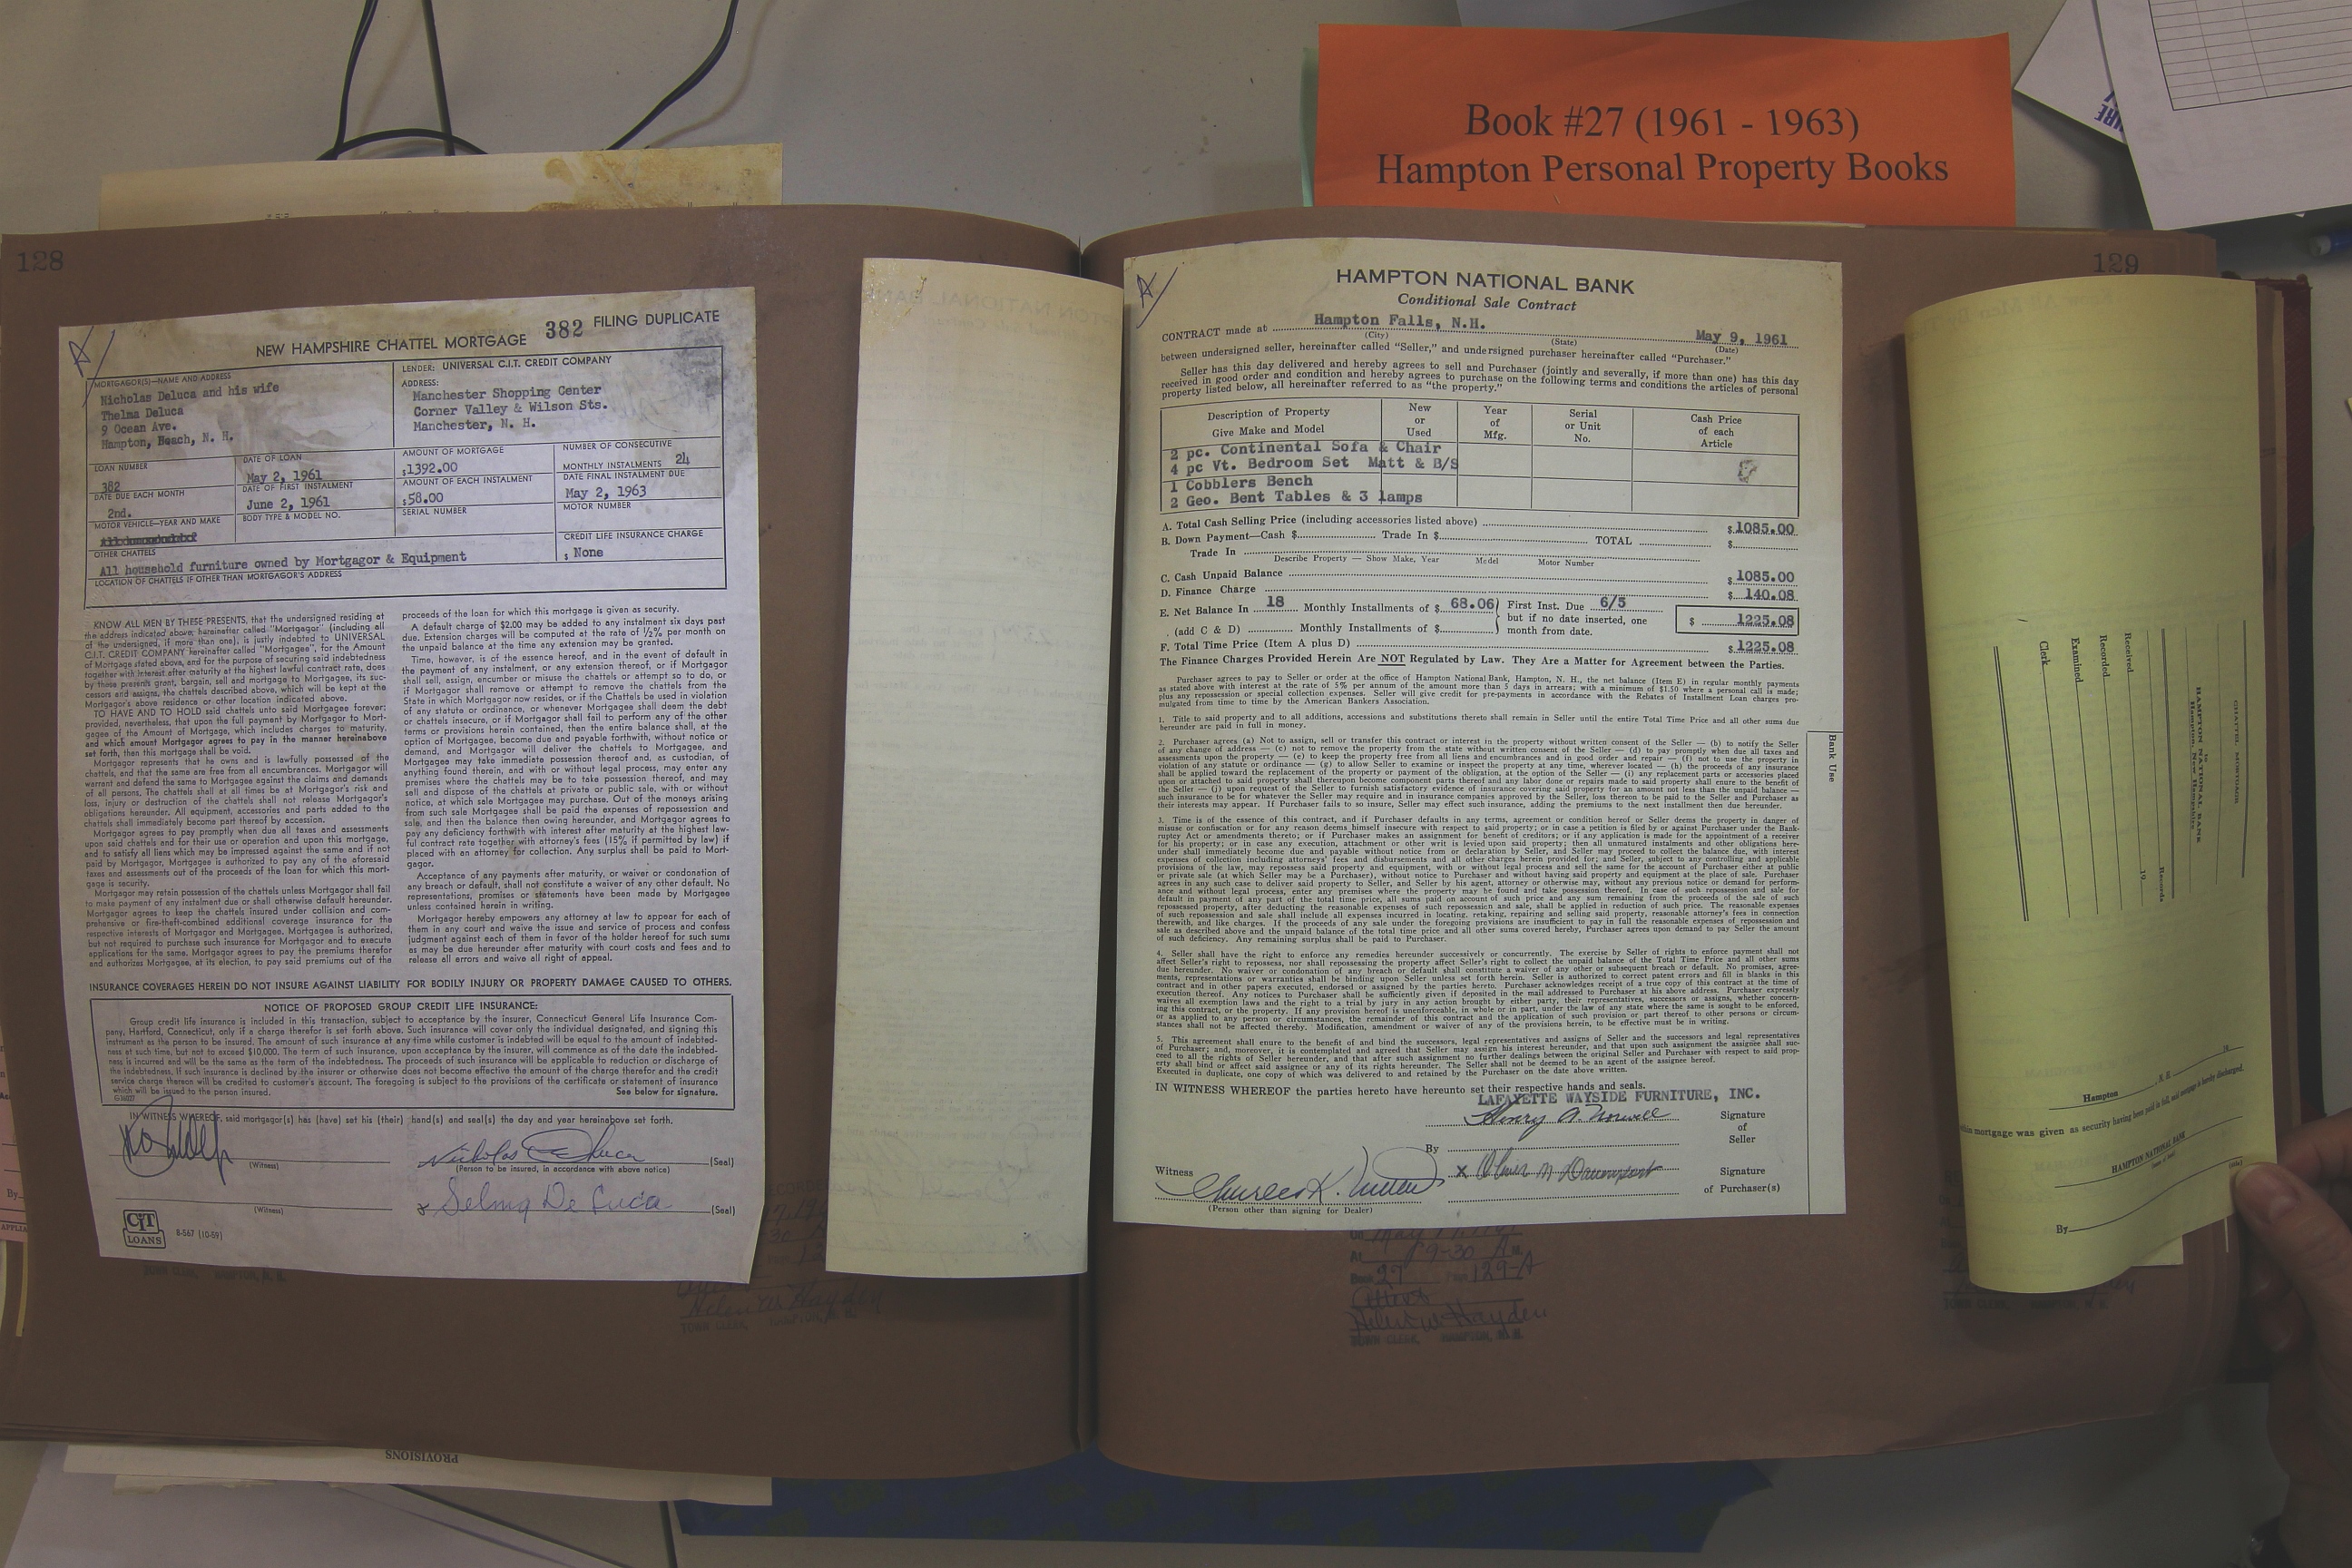 Book #27 (1961 - 1963)
Hampton Personal Property Books
128
129
382 FILING DUPLICATE
NEW HAMPSHIRE CHATTEL MORTGAGE
MORTGAGOR(S)—NAME AND ADDRESS
Nicholas Deluca and his wife
Thelma Deluca
9 Ocean Ave.
Hampton, Beach, N. H.
LENDER: UNIVERSAL C.I.T. CREDIT COMPANY
ADDRESS:
Manchester Shopping Center
Corner Valley & Wilson Sts.
Manchester, N. H.
LOAN NUMBER
382
DATE OF LOAN
May 2, 1961
AMOUNT OF MORTGAGE
$1392.00
NUMBER OF CONSECUTIVE
MONTHLY INSTALMENTS 24
DATE DUE EACH MONTH
2nd.
DATE OF FIRST INSTALMENT
June 2, 1961
AMOUNT OF EACH INSTALMENT
$58.00
DATE FINAL INSTALMENT DUE
May 2, 1963
MOTOR VEHICLE—YEAR AND MAKE
BODY TYPE & MODEL NO.
SERIAL NUMBER
MOTOR NUMBER
OTHER CHATTELS
All household furniture owned by Mortgagor & Equipment
CREDIT LIFE INSURANCE CHARGE
$ None
LOCATION OF CHATTELS IF OTHER THAN MORTGAGOR'S ADDRESS
KNOW ALL MEN BY THESE PRESENTS, that the undersigned residing at
the address indicated above, hereinafter called "Mortgagor" (including all
the undersigned, if more than one), is justly indebted to UNIVERSAL
C.I.T. CREDIT COMPANY hereinafter called "Mortgagee", for the Amount
of Mortgage stated above, and for the purpose of securing said indebtedness
together with interest after maturity at the highest lawful contract rate, does
by these presents grant, bargain, sell and mortgage to Mortgagee, its suc-
cessors and assigns, the chattels described above, which will be kept at the
Mortgagor's above residence or other location indicated above.
TO HAVE AND TO HOLD said chattels unto said Mortgagee forever;
provided, nevertheless, that upon the full payment by Mortgagor to Mort-
gagee of the Amount of Mortgage, which includes charges to maturity,
and which amount Mortgagor agrees to pay in the manner hereinabove
set forth, than this mortgage shall be void.
Mortgagor represents that he owns and is lawfully possessed of the
chattels, and that the same are free from all encumbrances. Mortgagor will
warrant and defend the same to Mortgagee against the claims and demands
of all persons. The chattels shall at all times be at Mortgagor's risk and
loss, injury or destruction of the chattels shall not release Mortgagor's
obligations hereunder. All equipment, accessories and parts added to the
chattels shall immediately become part thereof by accession.
Mortgagor agrees to pay promptly when due all taxes and assessments
upon said chattels and for their use or operation and upon this mortgage,
and to satisfy all liens which may be impressed against the same and if not
paid by Mortgagor, Mortgagee is authorized to pay any of the aforesaid
taxes and assessments out of the proceeds of the loan for which this mort-
gage is security.
Mortgagor may retain possession of the chattels unless Mortgagor shall fail
to make payment of any instalment due or shall otherwise default hereunder.
Mortgagor agrees to keep the chattels insured under collision and com-
prehensive or fire-theft-combined additional coverage insurance for the
respective interests of Mortgagor and Mortgagee. Mortgagee is authorized,
but not required to purchase such insurance for Mortgagor and to execute
applications for the same. Mortgagor agrees to pay the premiums therefor
and authorizes Mortgagee, at its election, to pay said premiums out of the
proceeds of the loan for which this mortgage is given as security.
A default charge of $2.00 may be added to any instalment six days past
due. Extension charges will be computed at the rate of ½% per month on
the unpaid balance at the time any extension may be granted.
Time, however, is of the essence hereof, and in the event of default in
the payment of any instalment, or any extension thereof, or if Mortgagor
shall sell, assign, encumber or misuse the chattels or attempt so to do, or
if Mortgagor shall remove or attempt to remove the chattels from the
State in which Mortgagor now resides, or if the Chattels be used in violation
of any statute or ordinance, or whenever Mortgagee shall deem the debt
or chattels insecure, or if Mortgagor shall fail to perform any of the other
terms or provisions herein contained, then the entire balance shall, at the
option of Mortgagee, become due and payable forthwith, without notice or
demand, and Mortgagor will deliver the chattels to Mortgagee, and
Mortgagee may take immediate possession thereof and, as custodian, of
anything found therein, and with or without legal process, may enter any
premises where the chattels may be to take possession thereof, and may
sell and dispose of the chattels at private or public sale, with or without
notice, at which sale Mortgagee may purchase. Out of the moneys arising
from such sale Mortgagee shall be paid the expenses of repossession and
sale, and then the balance then owing hereunder, and Mortgagor agrees to
pay any deficiency forthwith with interest after maturity at the highest law-
ful contract rate together with attorney's fees (15% if permitted by law) if
placed with an attorney for collection. Any surplus shall be paid to Mort-
gagor.
Acceptance of any payments after maturity, or waiver or condonation of
any breach or default, shall not constitute a waiver of any other default. No
representations, promises or statements have been made by Mortgagee
unless contained herein in writing.
Mortgagor hereby empowers any attorney at law to appear for each of
them in any court and waive the issue and service of process and confess
judgment against each of them in favor of the holder hereof for such sums
as may be due hereunder after maturity with court costs and fees and to
release all errors and waive all right of appeal.
INSURANCE COVERAGES HEREIN DO NOT INSURE AGAINST LIABILITY FOR BODILY INJURY OR PROPERTY DAMAGE CAUSED TO OTHERS.
NOTICE OF PROPOSED GROUP CREDIT LIFE INSURANCE:
Group credit life insurance is included in this transaction, subject to acceptance by the insurer, Connecticut General Life Insurance Com-
pany, Hartford, Connecticut, only if a charge therefor is set forth above. Such insurance will cover only the individual designated, and signing this
instrument as the person to be insured. The amount of such insurance at any time while customer is indebted will be equal to the amount of indebted-
ness at such time, but not to exceed $10,000. The term of such insurance, upon acceptance by the insurer, will commence as of the date the indebted-
ness is incurred and will be the same as the term of the indebtedness. The proceeds of such insurance will be applicable to reduction or discharge of
the indebtedness. If such insurance is declined by the insurer or otherwise does not become effective the amount of the charge therefor and the credit
service charge thereon will be credited to customer's account. The foregoing is subject to the provisions of the certificate or statement of insurance
which will be issued to the person insured. See below for signature.
IN WITNESS WHEREOF, said mortgagor(s) has (have) set his (their) hand(s) and seal(s) the day and year hereinabove set forth.
(Witness)
Nicholas DeLuca (Seal)
(Person to be insured, in accordance with above notice)
(Witness)
x Selma De Luca (Seal)
CIT
LOANS
8-567 (10-59)
TOWN CLERK, HAMPTON, N. H.
Helen W. Hayden
TOWN CLERK, HAMPTON, N. H.
PROVISIONS
HAMPTON NATIONAL BANK
Conditional Sale Contract
CONTRACT made at Hampton Falls, N.H. May 9, 1961
(City) (State) (Date)
between undersigned seller, hereinafter called "Seller," and undersigned purchaser hereinafter called "Purchaser."
Seller has this day delivered and hereby agrees to sell and Purchaser (jointly and severally, if more than one) has this day
received in good order and condition and hereby agrees to purchase on the following terms and conditions the articles of personal
property listed below, all hereinafter referred to as "the property."
Description of Property
Give Make and Model
New
or
Used
Year
of
Mfg.
Serial
or Unit
No.
Cash Price
of each
Article
2 pc. Continental Sofa & Chair
4 pc Vt. Bedroom Set Matt & B/S
1 Cobblers Bench
2 Geo. Bent Tables & 3 lamps
A. Total Cash Selling Price (including accessories listed above) $1085.00
B. Down Payment—Cash $ Trade In $ TOTAL $
Trade In
Describe Property — Show Make, Year Model Motor Number
C. Cash Unpaid Balance $1085.00
D. Finance Charge $ 140.08
E. Net Balance In 18 Monthly Installments of $ 68.06 First Inst. Due 6/5
but if no date inserted, one
month from date.
$ 1225.08
(add C & D) Monthly Installments of $
F. Total Time Price (Item A plus D) $1225.08
The Finance Charges Provided Herein Are NOT Regulated by Law. They Are a Matter for Agreement between the Parties.
Purchaser agrees to pay to Seller or order at the office of Hampton National Bank, Hampton, N. H., the net balance (Item E) in regular monthly payments
as stated above with interest at the rate of 5% per annum of the amount more than 5 days in arrears; with a minimum of $1.50 where a personal call is made;
plus any repossession or special collection expenses. Seller will give credit for pre-payments in accordance with the Rebates of Installment Loan charges pro-
mulgated from time to time by the American Bankers Association.
1. Title to said property and to all additions, accessions and substitutions thereto shall remain in Seller until the entire Total Time Price and all other sums due
hereunder are paid in full in money.
2. Purchaser agrees (a) Not to assign, sell or transfer this contract or interest in the property without written consent of the Seller — (b) to notify the Seller
of any change of address — (c) not to remove the property from the state without written consent of the Seller — (d) to pay promptly when due all taxes and
assessments upon the property — (e) to keep the property free from all liens and encumbrances and in good order and repair — (f) not to use the property in
violation of any statute or ordinance — (g) to allow Seller to examine or inspect the property at any time, wherever located — (h) the proceeds of any insurance
shall be applied toward the replacement of the property or payment of the obligation, at the option of the Seller — (i) any replacement parts or accessories placed
upon or attached to said property shall thereupon become component parts thereof and any labor done or repairs made to said property shall enure to the benefit of
the Seller — (j) upon request of the Seller to furnish satisfactory evidence of insurance covering said property for an amount not less than the unpaid balance —
such insurance to be for whatever the Seller may require and in insurance companies approved by the Seller, loss thereon to be paid to the Seller and Purchaser as
their interests may appear. If Purchaser fails to so insure, Seller may effect such insurance, adding the premiums to the next installment then due hereunder.
3. Time is of the essence of this contract, and if Purchaser defaults in any terms, agreement or condition hereof or Seller deems the property in danger of
misuse or confiscation or for any reason deems himself insecure with respect to said property; or in case a petition is filed by or against Purchaser under the Bank-
ruptcy Act or amendments thereto; or if Purchaser makes an assignment for benefit of creditors; or if any application is made for the appointment of a receiver
for his property; or in case any execution, attachment or other writ is levied upon said property; then all unmatured instalments and other obligations here-
under shall immediately become due and payable without notice from or declaration by Seller, and Seller may proceed to collect the balance due, with interest
expenses of collection including attorneys' fees and disbursements and all other charges herein provided for; and Seller, subject to any controlling and applicable
provisions of the law, may repossess said property and equipment, with or without legal process and sell the same for the account of Purchaser either at public
or private sale (at which Seller may be a Purchaser), without notice to Purchaser and without having said property and equipment at the place of sale. Purchaser
agrees in any such case to deliver said property to Seller, and Seller by his agent, attorney or otherwise may, without any previous notice or demand for perform-
ance and without legal process, enter any premises where the property may be found and take possession thereof. In case of such repossession and sale for
default in payment of any part of the total time price, all sums paid on account of such price and any sum remaining from the proceeds of the sale of such
repossessed property, after deducting the reasonable expenses of such repossession and sale, shall be applied in reduction of such price. The reasonable expenses
of such repossession and sale shall include all expenses incurred in locating, retaking, repairing and selling said property, reasonable attorney's fees in connection
therewith, and like charges. If the proceeds of any sale under the foregoing provisions are insufficient to pay in full the reasonable expenses of repossession and
sale as described above and the unpaid balance of the total time price and all other sums covered hereby, Purchaser agrees upon demand to pay Seller the amount
of such deficiency. Any remaining surplus shall be paid to Purchaser.
4. Seller shall have the right to enforce any remedies hereunder successively or concurrently. The exercise by Seller of rights to enforce payment shall not
affect Seller's right to repossess, nor shall repossessing the property affect Seller's right to collect the unpaid balance of the Total Time Price and all other sums
due hereunder. No waiver or condonation of any breach or default shall constitute a waiver of any other or subsequent breach or default. No promises, agree-
ments, representations or warranties shall be binding upon Seller unless set forth herein. Seller is authorized to correct patent errors and fill in blanks in this
contract and in other papers executed, endorsed or assigned by the parties hereto. Purchaser acknowledges receipt of a true copy of this contract at the time of
execution thereof. Any notices to Purchaser shall be sufficiently given if deposited in the mail addressed to Purchaser at his above address. Purchaser expressly
waives all exemption laws and the right to a trial by jury in any action brought by either party, their representatives, successors or assigns, whether concern-
ing this contract, or the property. If any provision hereof is unenforceable, in whole or in part, under the law of any state where the same is sought to be enforced,
or as applied to any person or circumstances, the remainder of this contract and the application of such provision or part thereof to other persons or circum-
stances shall not be affected thereby. Modification, amendment or waiver of any of the provisions herein, to be effective must be in writing.
5. This agreement shall enure to the benefit of and bind the successors, legal representatives and assigns of Seller and the successors and legal representatives
of Purchaser; and, moreover, it is contemplated and agreed that Seller may assign his interest hereunder, and that upon such assignment the assignee shall suc-
ceed to all the rights of Seller hereunder, and that after such assignment no further dealings between the original Seller and Purchaser with respect to said prop-
erty shall bind or affect said assignee or any of its rights hereunder. The Seller shall not be deemed to be an agent of the assignee hereof.
Executed in duplicate, one copy of which was delivered to and retained by the Purchaser on the date above written.
Bank Use
IN WITNESS WHEREOF the parties hereto have hereunto set their respective hands and seals.
LAFAYETTE WAYSIDE FURNITURE, INC.
Signature
of
Seller
By
Witness
x
Signature
of Purchaser(s)
(Person other than signing for Dealer)
At 9-30 A.M.
Book 27 Page 129-A
Attest
Helen W. Hayden
TOWN CLERK, HAMPTON, N. H.
CHATTEL MORTGAGE
to
HAMPTON NATIONAL BANK
Hampton, New Hampshire
Records
19
Received
Recorded
Examined
Clerk
Hampton , N. H. 19
mortgage was given as security having been paid in full, said mortgage is hereby discharged.
HAMPTON NATIONAL BANK
By